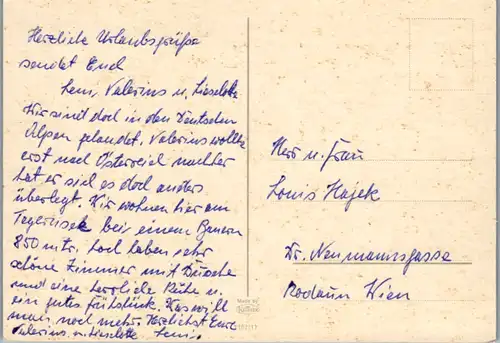 Herzliche Urlaubsgrüße
sendet Euch
Leni, Valerius u. Lieselotte
Wir sind doch in den Deutschen
Alpen gelandet, Valerius wollte
erst nach Österreich nachher
hat er sich es doch anders
überlegt. Wir wohnen hier am
Tegernsee bei einem Bauern
850 mtr. hoch haben sehr
schöne Zimmer mit Dusche
und eine herrliche Ruhe u.
ein gutes Frühstück. Was will
man noch mehr. Herzlichst Eure
Valerius u. Lieselotte Leni.
Herr u. Frau
Louis Hajek
Dr. Neumanngasse
Rodaun Wien
Made by